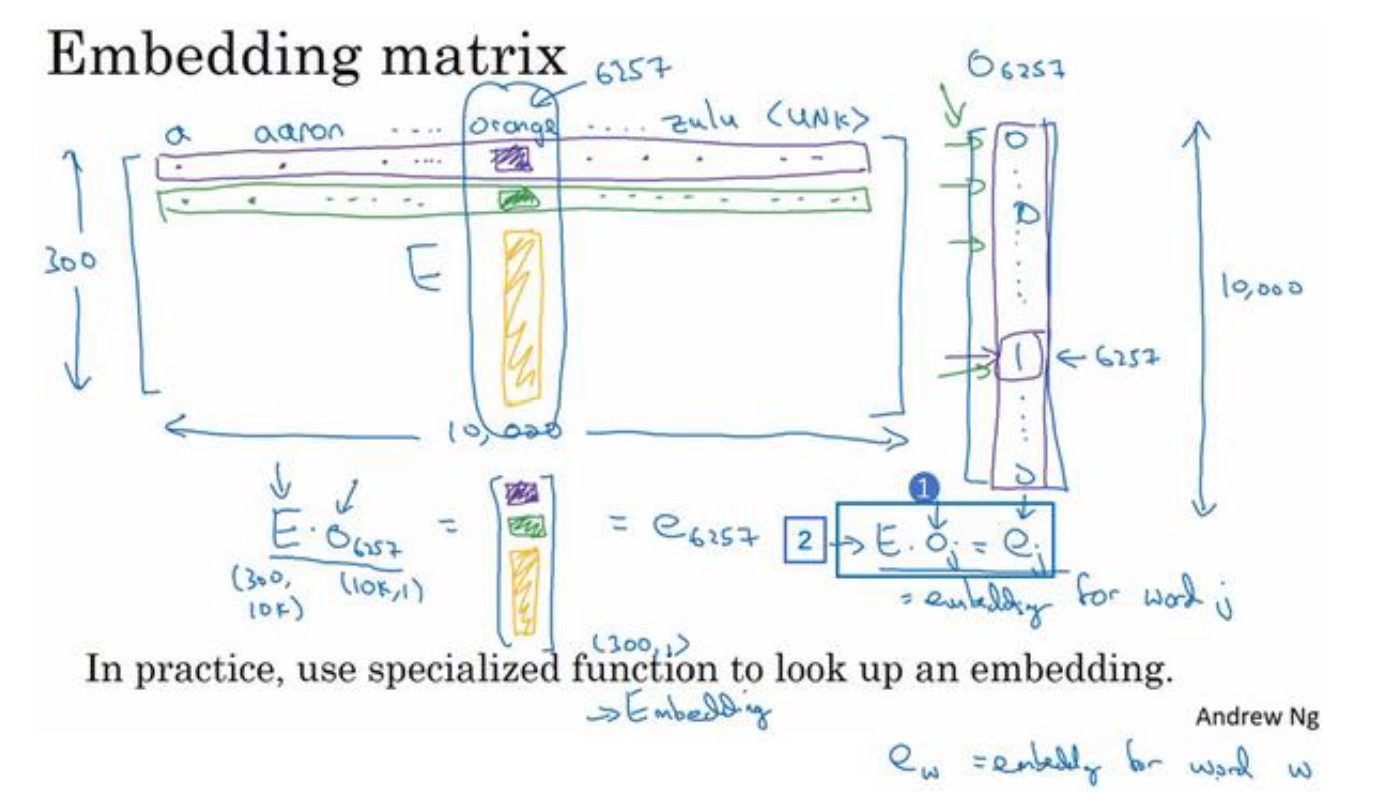 Embedding matrix
6257
O6257
a aaron ..... orange ..... zulu <UNK>
0
0
300
E
10,000
1 ← 6257
10,000
0
1
E · O6257 = [ ] = e6257
2 → E · Oj = ej
(300, 10K) (10K, 1)
= embedding for word j
(300, 1)
In practice, use specialized function to look up an embedding.
→ Embedding
Andrew Ng
ew = embeddg for word w